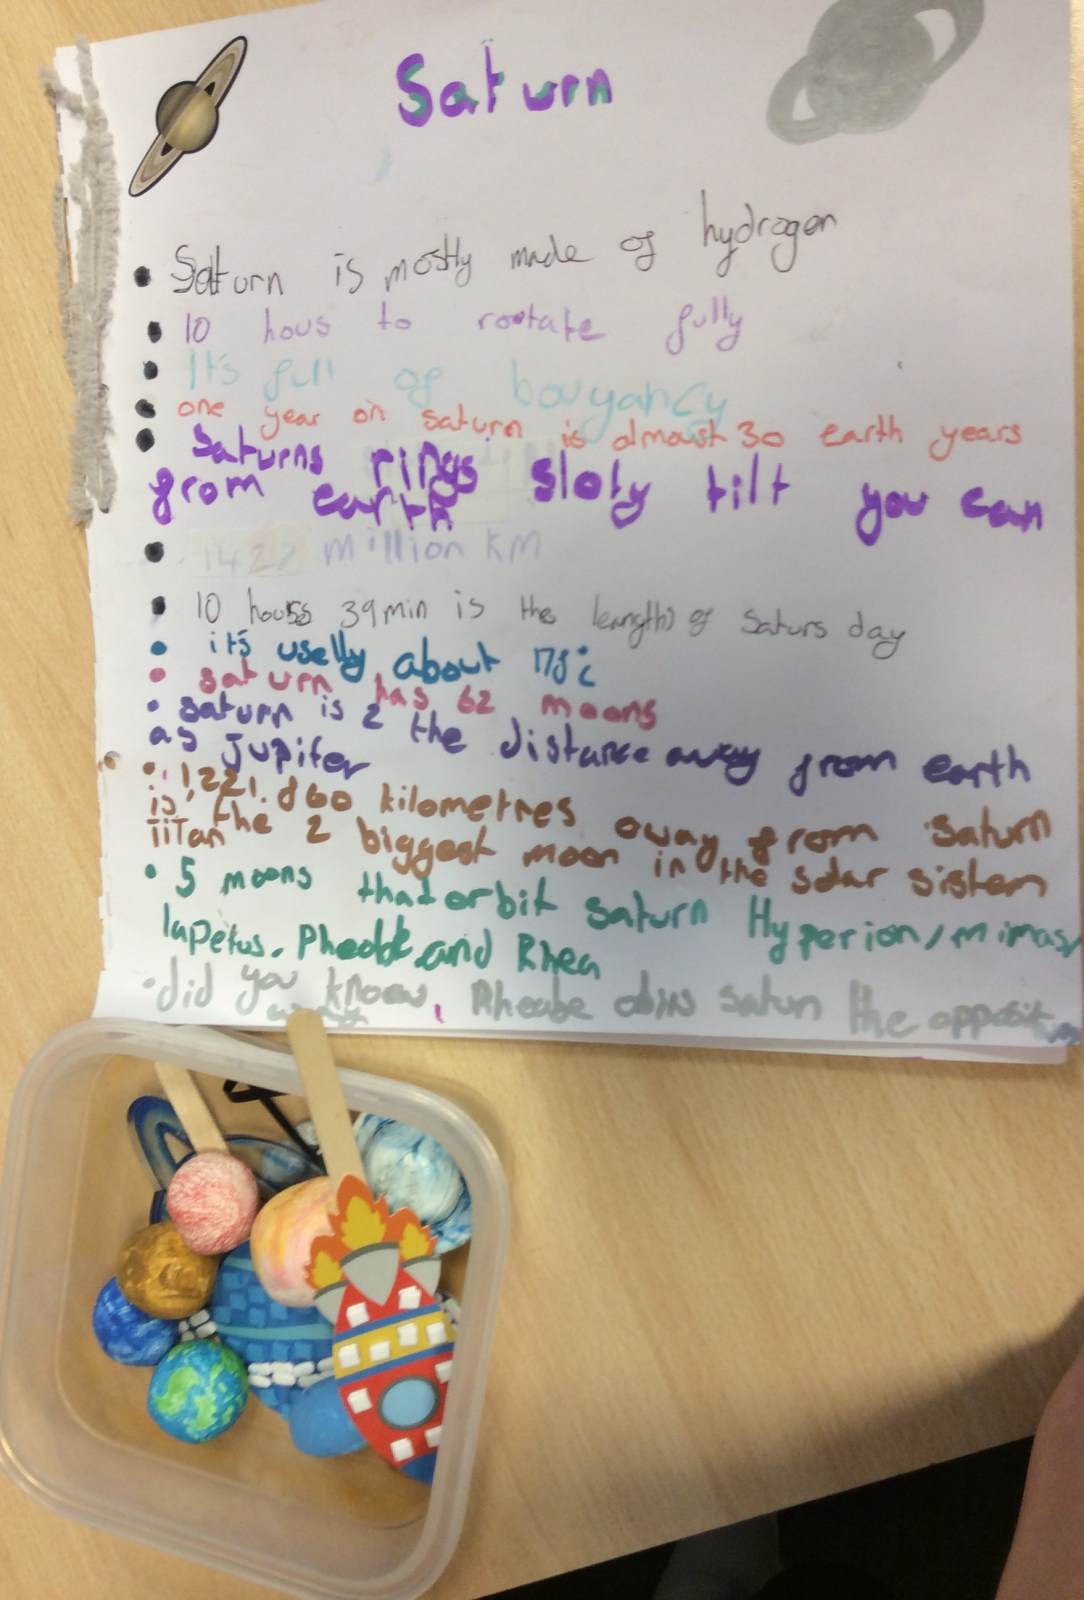 Saturn
• Saturn is mostly made of hydrogen
• 10 hous to rotate fully
• It's full of bouyancy
• one year on saturn is almost 30 earth years
• Saturns rings sloty tilt you can
from earth
• 1427 million KM
• 10 hours 39min is the length of Saturs day
• it's uselly about
• saturn has 62 moons
• saturn is 2 the distance away from earth
as Jupiter
• 1,221.860 kilometres away from Saturn
is TiTan the 2 biggest moon in the solar sistem
• 5 moons that orbit saturn Hyperion, mimas,
Iapetus, and Rhea
• did you know, Saturn the opposit